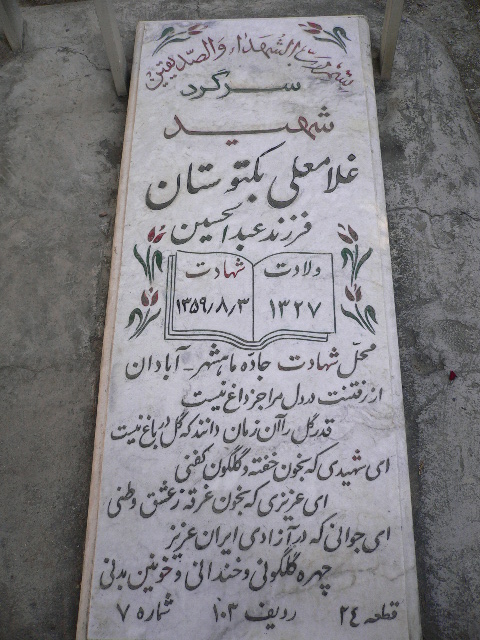 بسم رب الشهداء والصدیقین
سرگرد
شهید
غلامعلی بکتوستان
فرزند عبدالحسین
ولادت
۱۳۲۷
شهادت
۱۳۵۹/۸/۳
محلّ شهادت جادّه ماهشهر - آبادان
از رفتنت در دل مرا جز داغ نیست
قدر گل را آن زمان دانند که گل در باغ نیست
ای شهیدی که بخون خفته و گلگون کفنی
ای عزیزی که بخون غرقه ز عشق وطنی
ای جوانی که در آزادی ایران عزیز
چهره گلگونی و خندانی و خونین بدنی
قطعه ۲۴ ردیف ۱۰۳ شماره ۷